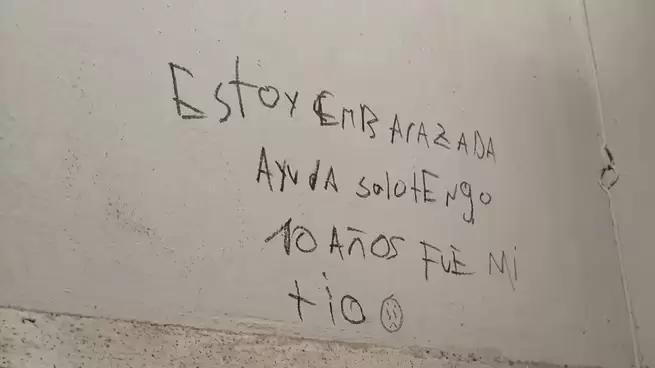 Estoy EmBArAZADA
AyudA solotEngo
10 AÑOS FUE Mi
tio